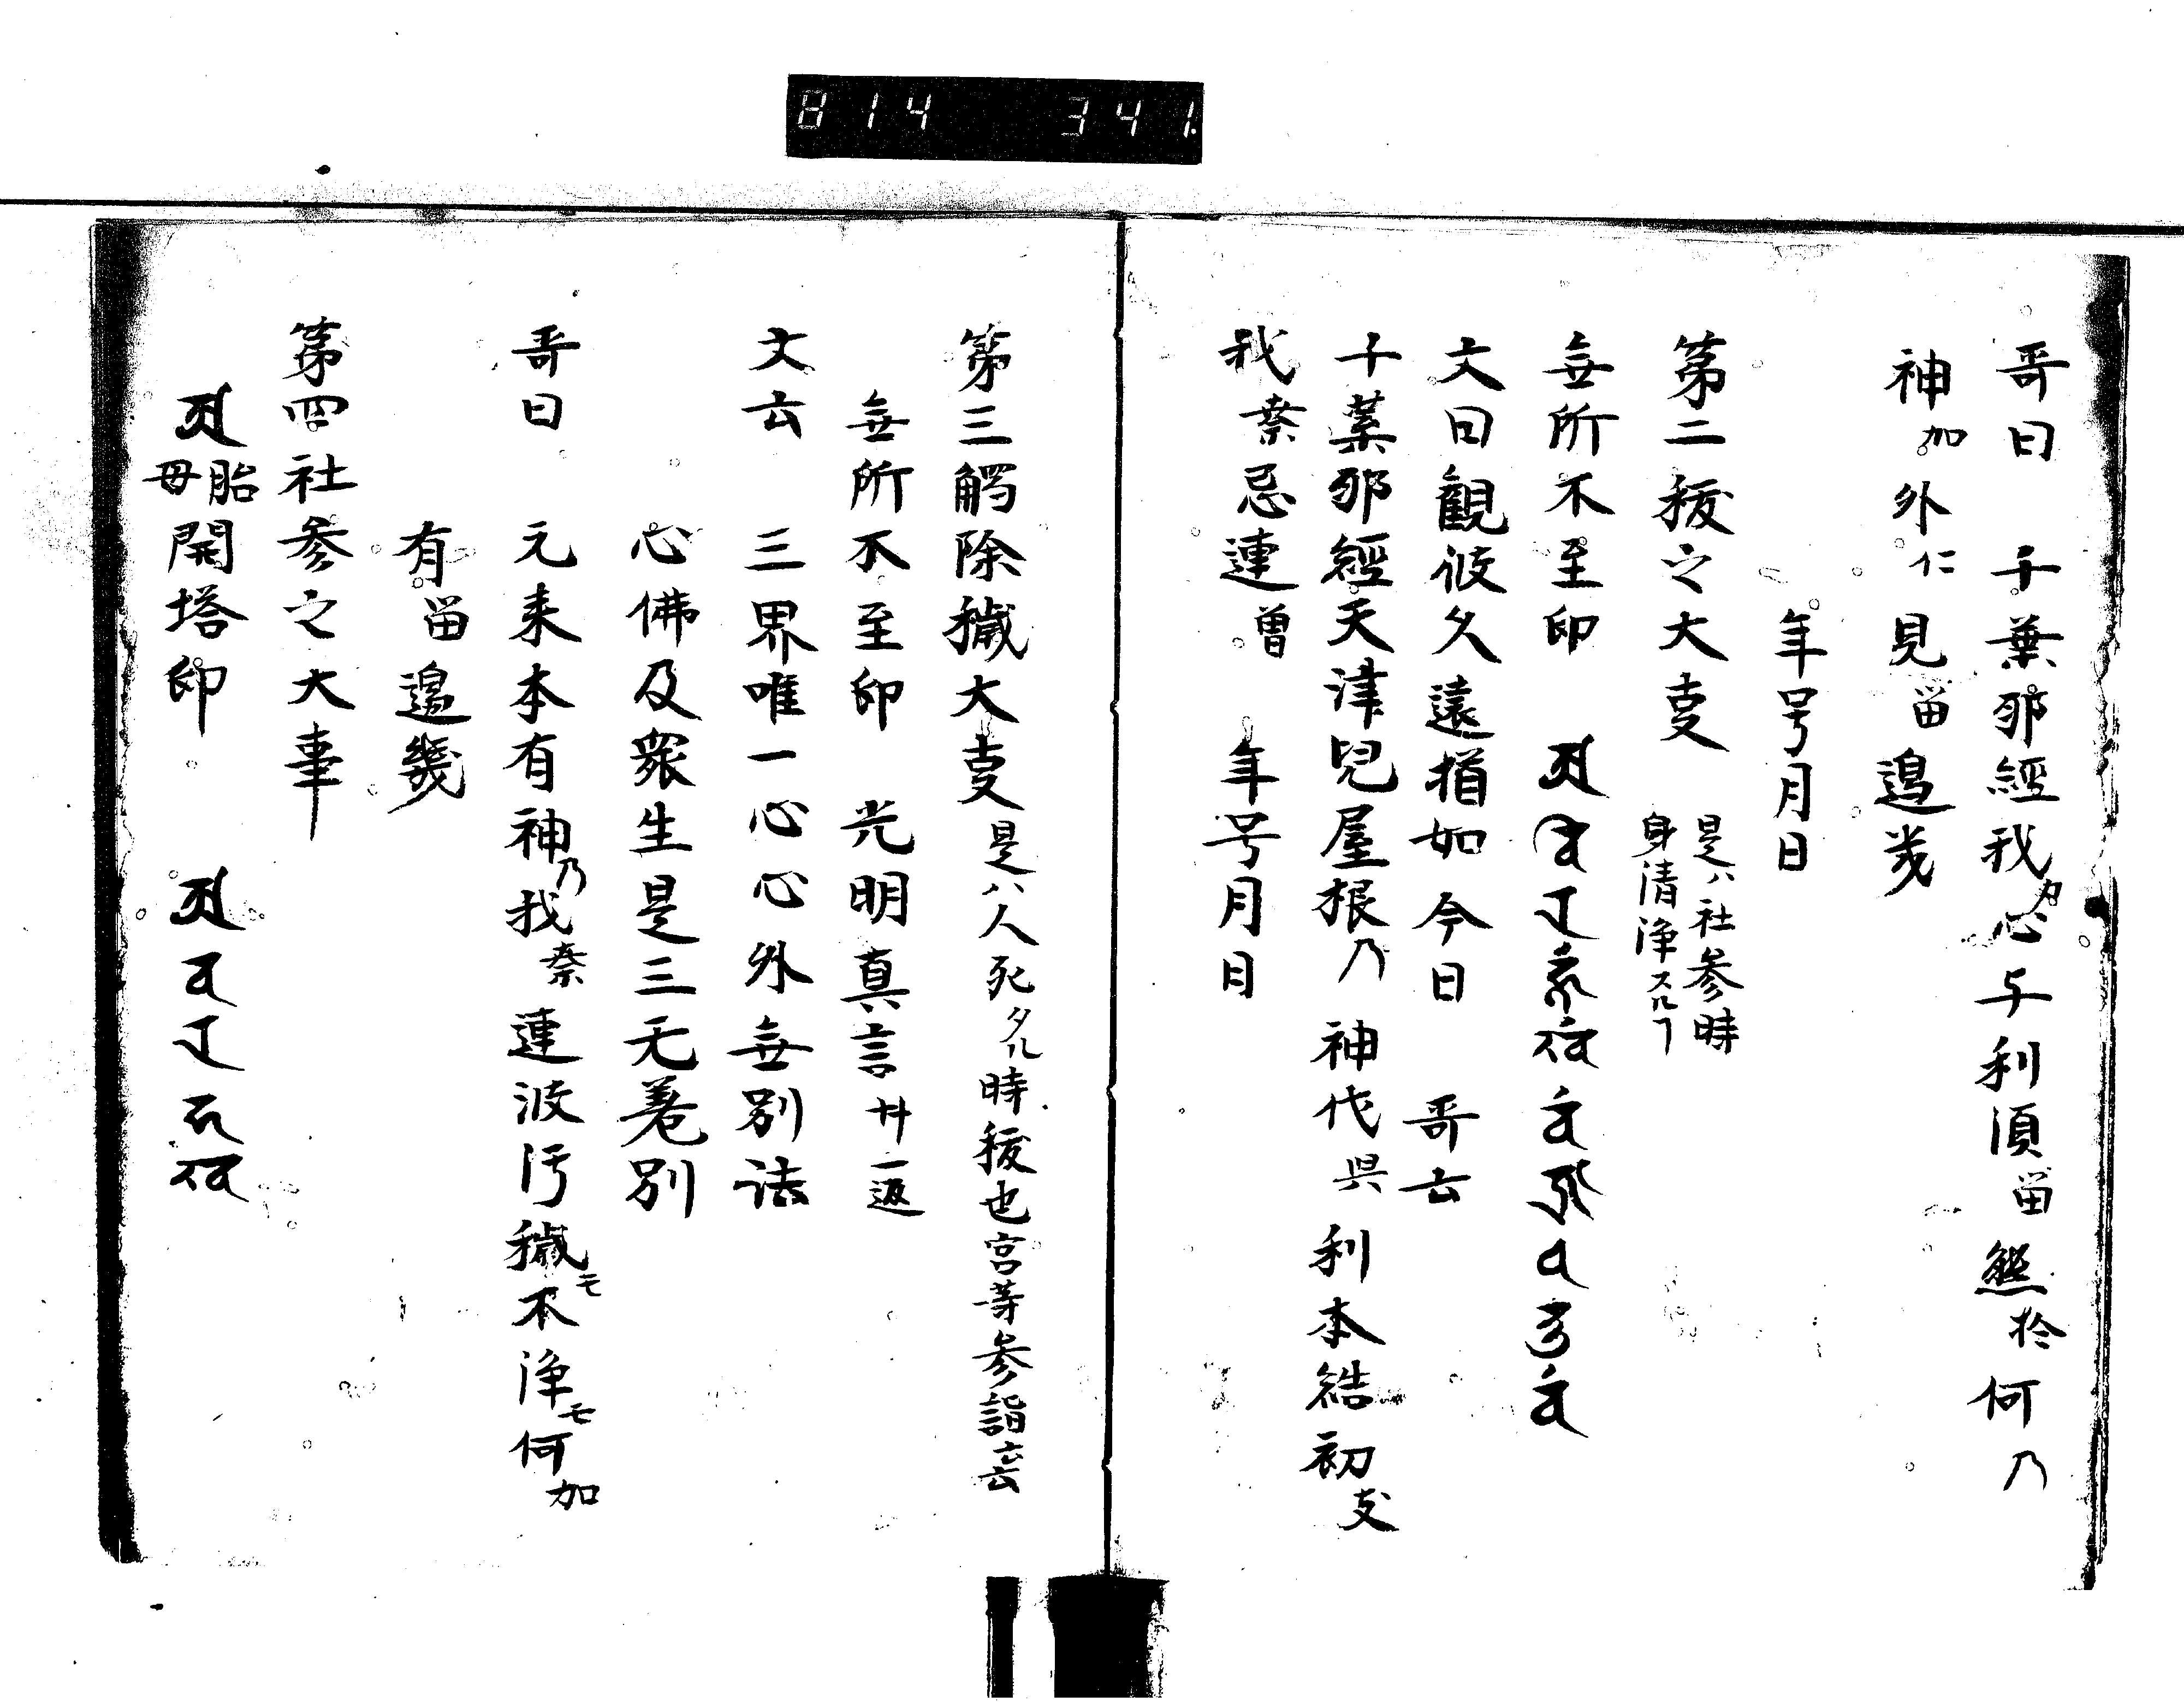 814 341
哥曰 千葉邪經我カ心与利須留熊於何乃
神加外仁見留邊㦲
年号月日
第二秡之大㕝 是ハ社参時身清浄スル㇆
無所不至印
文曰觀彼久遠猶如今日 哥云
千葉邪經天津兒屋根乃神代与利本結初支
我奈忌連曽 年号月日
第三觸除穢大㕝是ハ人死タル時秡也宮等参詣云云
無所不至印 光明真言廿一返
文云 三界唯一心心外無別法
心佛及衆生是三无差別
哥曰 元来本有神乃我奈連波汚穢モ不浄モ何加
有留邊幾
第四社参之大事
胎母開塔印